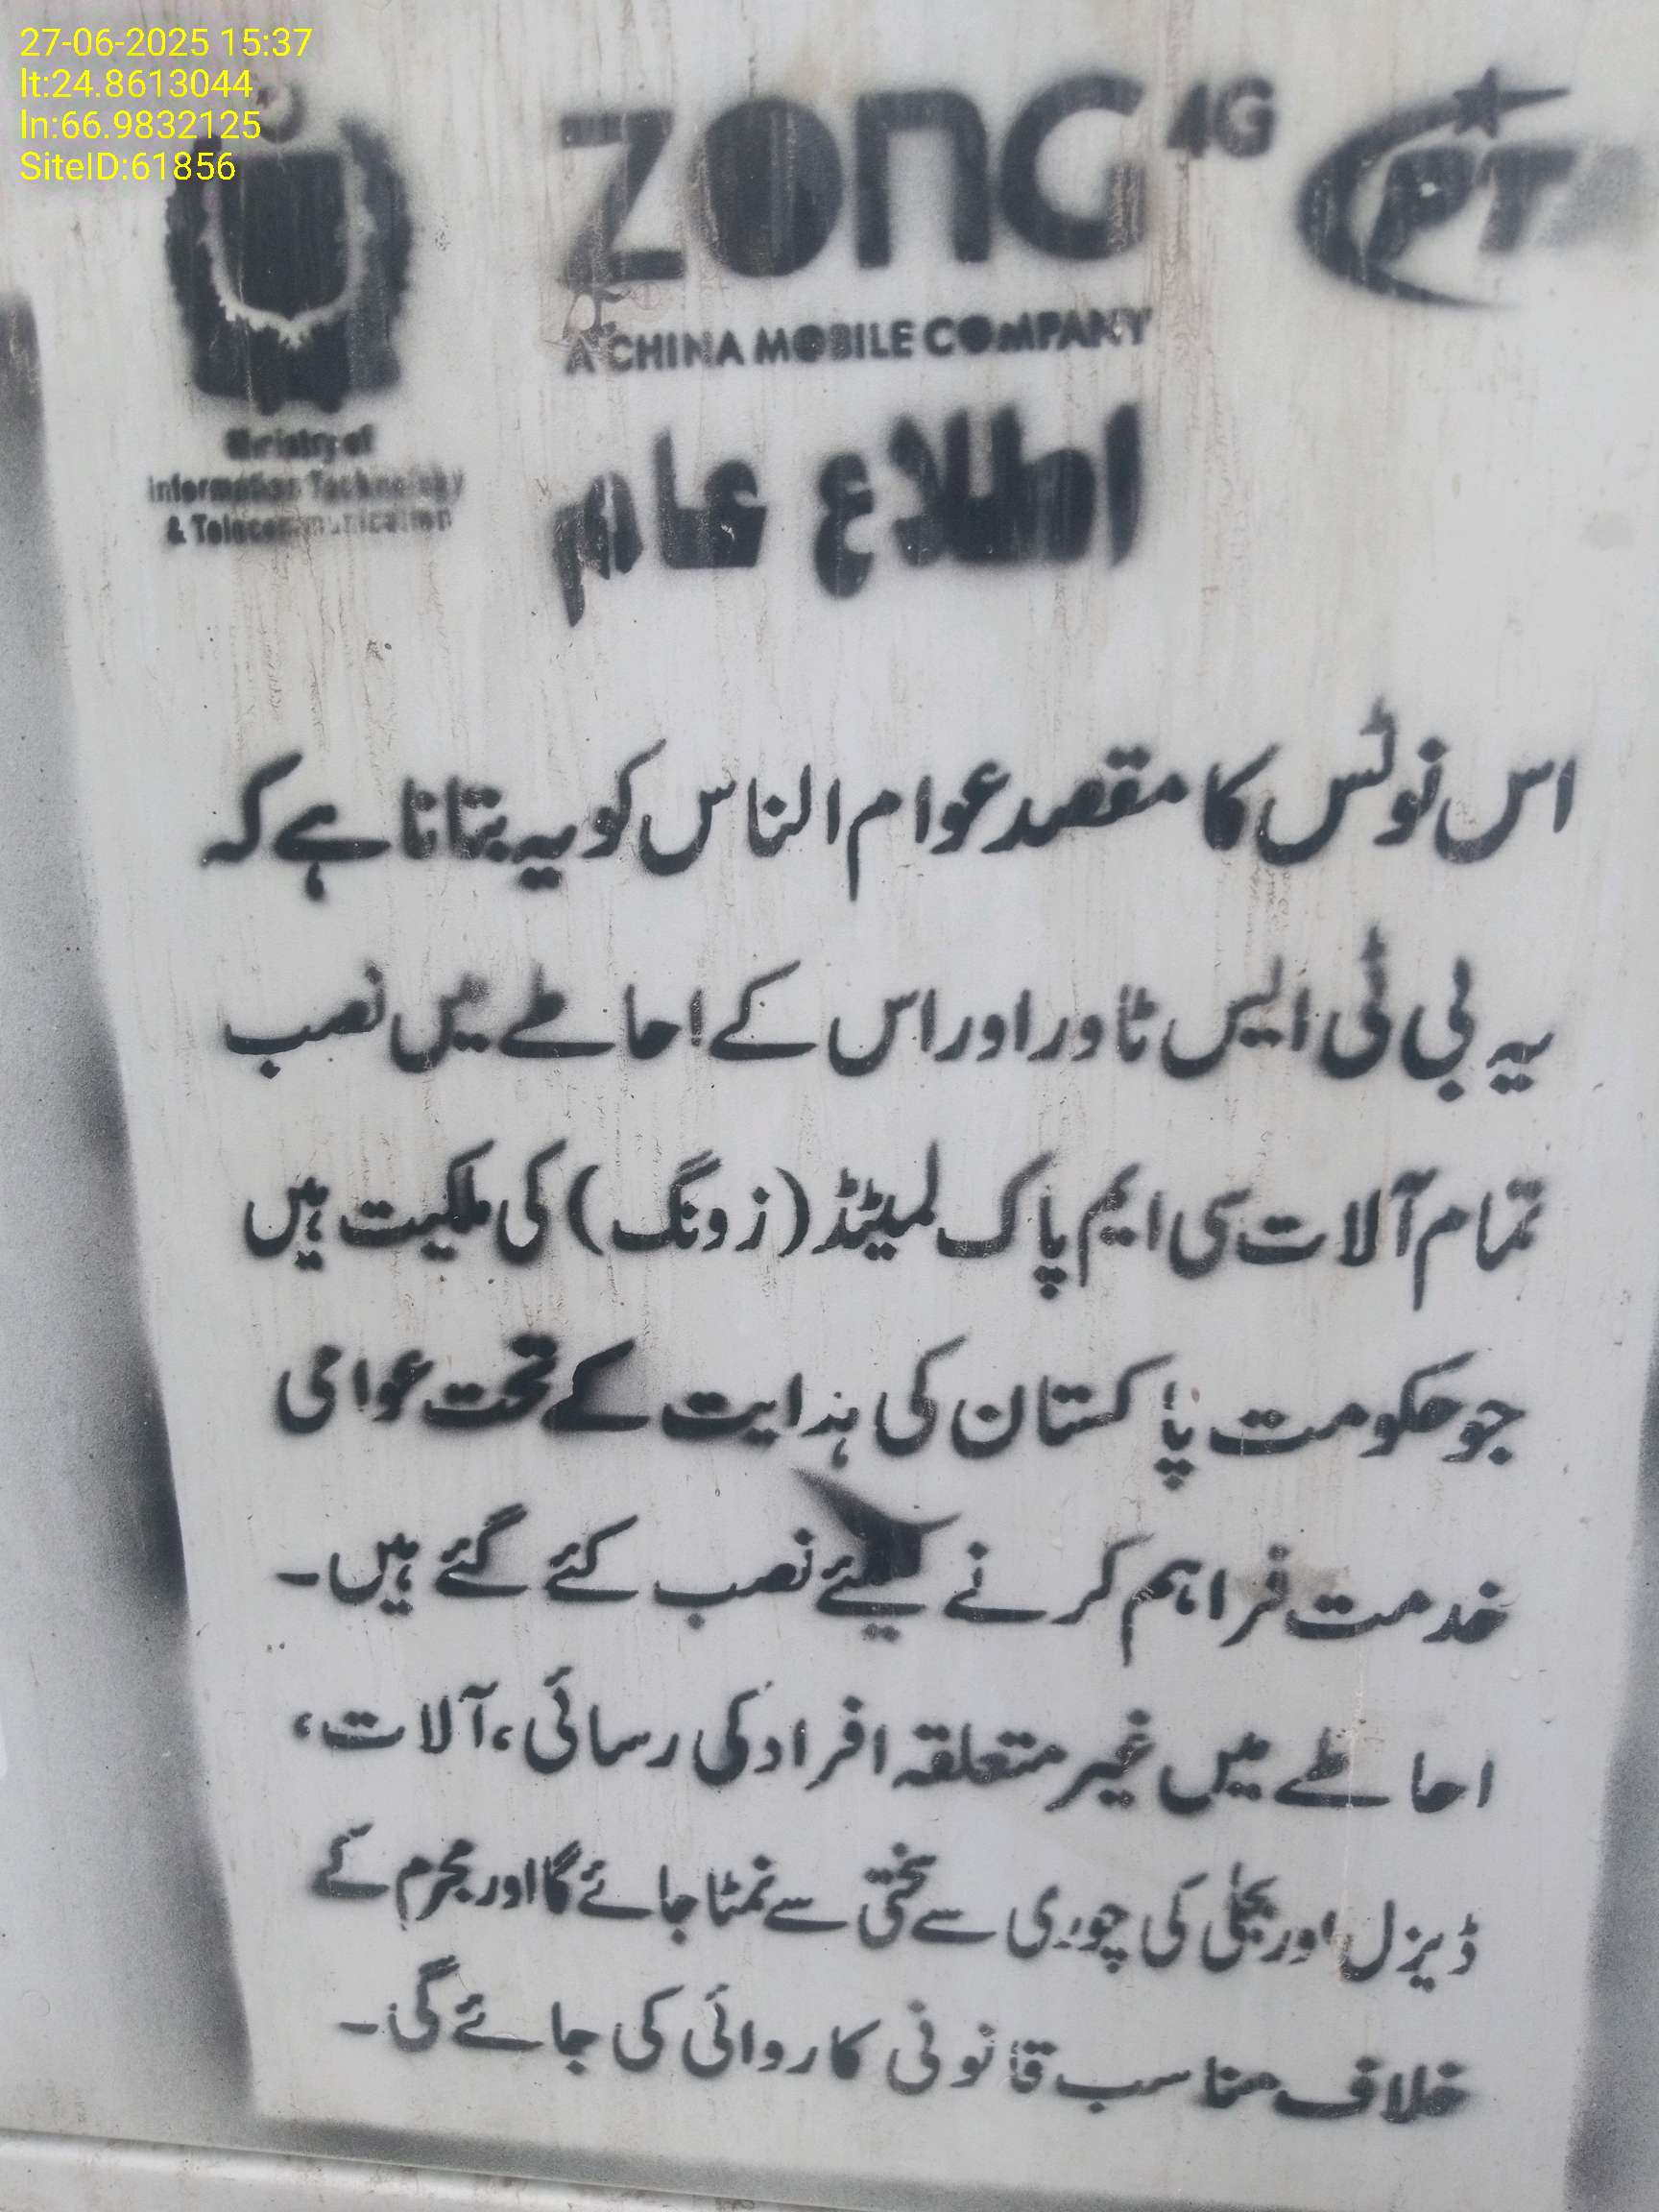 27-06-2025 15:37
lt:24.8613044
ln:66.9832125
SiteID:61856
ZONG 4G
PT
A CHINA MOBILE COMPANY
Ministry of
Information Technology
& Telecommunication
اطلاع عام
اس نوٹس کا مقصد عوام الناس کو یہ بتانا ہے کہ
یہ بی ٹی ایس ٹاور اور اس کے احاطے میں نصب
تمام آلات سی ایم پاک لمیٹڈ (زونگ) کی ملکیت ہیں
جو حکومت پاکستان کی ہدایت کے تحت عوامی
خدمت فراہم کرنے کیلئے نصب کئے گئے ہیں۔
احاطے میں غیر متعلقہ افراد کی رسائی، آلات،
ڈیزل اور بجلی کی چوری سے سختی سے نمٹا جائے گا اور مجرم کے
خلاف مناسب قانونی کاروائی کی جائے گی۔